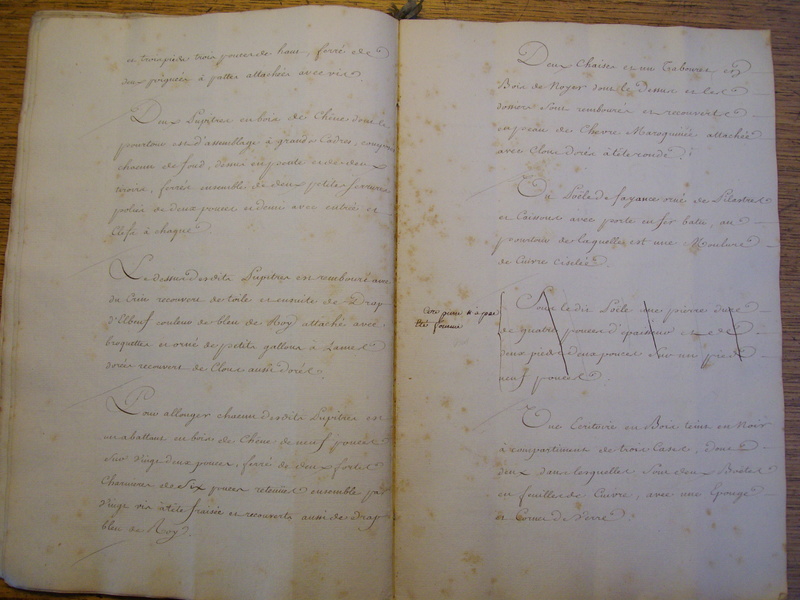 et trois pieds trois pouces de haut, ferré de
deux poignées à pattes attachées avec vis.
Deux Pupitres en bois de Chêne dont le
pourtour est d'assemblage à grands Cadres, composé
chacun de fond, dessus en pente et de deux
tiroirs, ferrés ensemble de deux petites serrures
polies de deux pouces et demie avec entrée et
Clefs à chaque.
Le dessus desdits Pupitres est rembourré avec
du Crin recouvert de toile et ensuite de Drap
d'Elbeuf couleur de bleu de Roy attaché avec
broquettes et orné de petits gallons à Lames
dorés recouverts de Clous aussi dorés.
Pour allonger chacun desdits Pupitres est
un abattant en bois de Chêne de neuf pouces
sur Vingt deux pouces, ferré de deux fortes
Charnières de Six pouces retenues ensemble par
Vingt vis à tête fraisée et recouverts aussi de drap
bleu de Roy.
Deux Chaises et un Tabouret en
Bois de Noyer dont le Dessus et les
dossiers sont rembourés et recouverts
en peau de Chevre Maroquinée attachée
avec Clous dorés à tête ronde.
Un Poële de fayance orné de Pilastres
et Caissons avec porte en fer batu, au
pourtour de laquelle est une Moulure
de Cuivre ciselée.
Cette pierre n'a pas
été fournie
Sous le dit Poële une pierre dure
de quatre pouces d'épaisseur et de
deux pieds deux pouces sur un pied
neuf pouces.
Une Ecritoire en Bois teint en Noir
à compartiment de trois Cases, dont
deux dans lesquelles sont deux Boëtes
en feuilles de Cuivre, avec une Eponge
et Cornet de Verre.